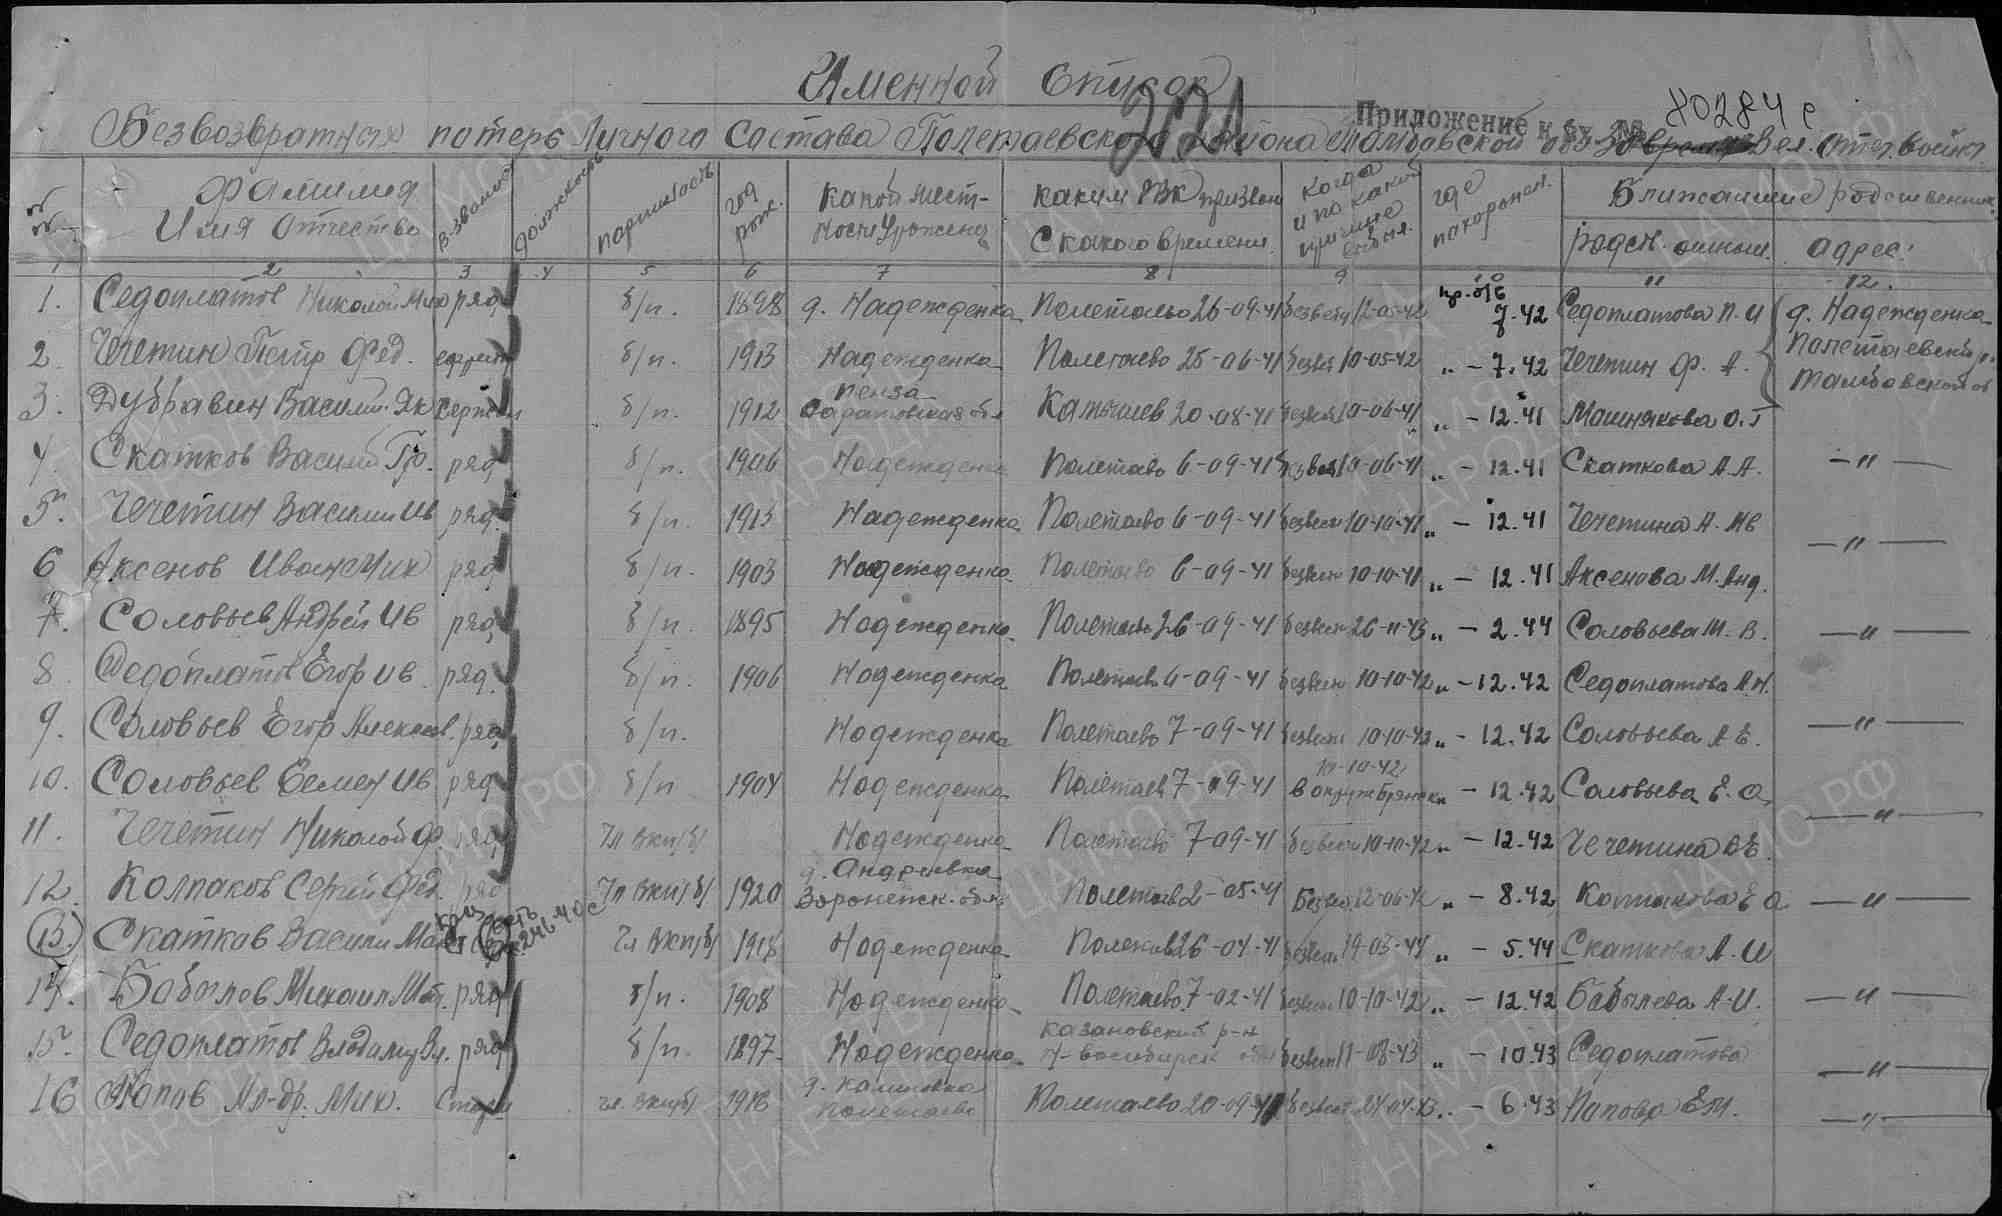 Именной список
221
Приложение к вх. № 40284 с
Безвозвратных потерь Личного Состава Полетаевского района Тамбовской обл за время Вел. Отеч. войны
Фамилия Имя Отчество | В. звание | должность | партийность | год рож. | Какой мест-ности урожен. | каким РВК призван С какого времени | Когда и по какой причине выбыл. | где похоронен. | Ближайшие родственник
родств. отнош. | адрес.
1 2 3 4 5 6 7 8 9 10 11 12.
1. Седоплатов Николай Мих ряд б/п. 1898 д. Надежденка Полетаево 26-09-41 безвести 12-05-42 пр. б/в 7.42 Седоплатова П. И д. Надежденка Полетаевский р. Тамбовской об
2. Чечетин Петр Фед. б/п. 1913 Надежденка Полетаево 25-06-41 безвест 10-05-42 „ - 7.42 Чечетин Ф. А.
3. Дубравин Василий Як Сержан б/п. 1912 Пенза Саратовская обл 20-08-41 безвест 10-06-41 „ - 12.41 О. Г
4. Скатков Василий Гр. ряд б/п. 1906 Надежденка Полетаево 6-09-41 безвест 10-06-41 „ - 12.41 Скаткова А. А. —"—
5. Чечетин Василий Ив ряд. б/п. 1913 Надежденка Полетаево 6-09-41 безвест 10-10-41 „ - 12.41 Чечетина А. Ив
—"—
6 Аксенов Иван Мих ряд б/п. 1903 Надежденка Полетаево 6-09-41 безвест 10-10-41 „ - 12.41 Аксенова М. Анд.
7. Соловьев Андрей Ив ряд. б/п. 1895 Надежденка Полетаево 26-09-41 безвест 26-11-43 „ - 2.44 Соловьева М. В. —"—
8. Седоплатов Егор Ив. ряд. б/п. 1906 Надежденка Полетаев 6-09-41 безвест 10-10-42 „ - 12.42 Седоплатова А. Н.
9. Соловьев Егор Алексеев. ряд б/п. Надежденка Полетаево 7-09-41 безвест 10-10-42 „ - 12.42 Соловьева А Е. —"—
10. Соловьев Семен Ив ряд б/п 1904 Надежденка Полетаев 7-09-41 10-10-42 в окруж Брянск „ - 12.42 Соловьева Е. А.
—"—
11. Чечетин Николай Ф. ряд Чл ВКП(б) Надежденка Полетаево 7-09-41 безвести 10-10-42 „ - 12.42 Чечетина В Е.
12. Колпаков Сергей Фед. ряд Чл ВКП(б) 1920 д. Андреевка Воронежск. обл. Полетаев 2-05-41 Безвес. 12-06-42 „ - 8.42 Колпакова Е А —"—
13. Скатков Василий Чл ВКП(б) 1918 Надежденка Полетаев 26-04-41 безвест 19-03-44 „ - 5.44 Скаткова А. И
14. Бобылев Михаил Мат. ряд б/п. 1908 Надежденка Полетаево 7-02-41 безвест 10-10-42 „ - 12.42 Бобылева А. И. —"—
15. Седоплатов Владимир Вл. ряд б/п. 1897 Надежденка Казановский р-н Н-восибирск обл безвест 11-08-43 „ - 10.43 Седоплатова —"—
16 Попов Ал-др. Мих. чл. ВКП(б) 1918 д. Калиновка Полетаево Полетаево 20-09-41 безвест 24-04-43 „ - 6.43 Попова Е М. —"—
ЦАМО РФ
ПАМЯТЬ НАРОДА